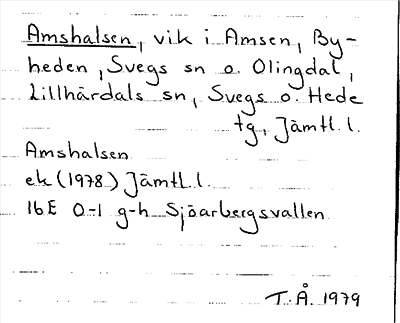 Amshalsen, vik i Amsen, By-
heden, Svegs sn o. Olingdal,
Lillhärdals sn, Svegs o. Hede
tg, Jämtl. l.
Amshalsen
ek (1978) Jämtl. l.
16E 0-1 g-h Sjöarbergsvallen
T. Å. 1979